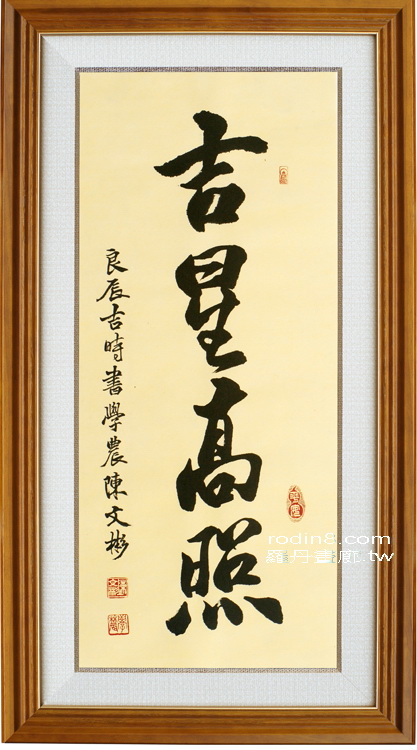 吉星高照
良辰吉時書學農陳文彬
rodin8.com
羅丹畫廊.tw